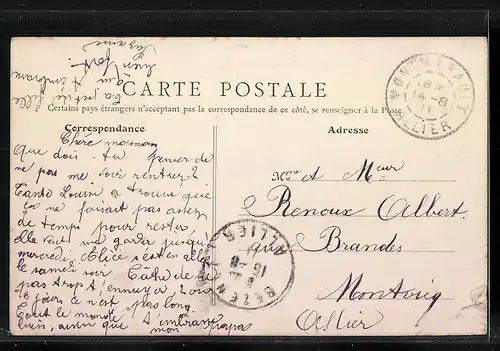 CARTE POSTALE
Certains pays étrangers n'acceptant pas la correspondance de ce côté, se renseigner à la Poste
Correspondance
Adresse
Chère maman
Que dois-tu penser de
ne pas me voir rentrer?
Tante Louise a trouvé que
ça ne faisait pas assez
de temps pour rester
elle veut me garder jusqu'à
mercredi Alice s'est en allée
le samedi soir Tâche de ne
pas trop t'ennuyer
jours ce n'est pas long.
Tout le monde
bien, ainsi que mon papa
t'embrasse
Ta petite fille
qui t'embrasse
bien fort.
Suzanne
Mme et Mr
Renoux Albert
Brandes
Montvicq
Allier
MONTMARAULT
18
14-8
11
ALLIER
BEZENET
ALLIER